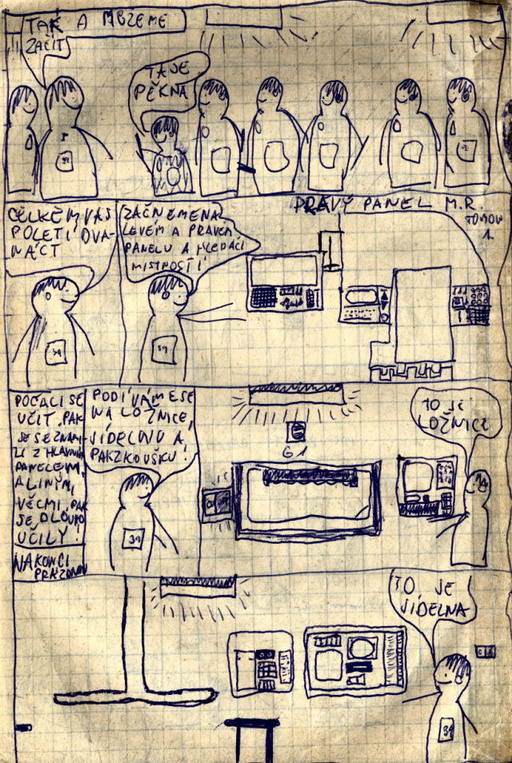 TAK A MŮŽEME
ZAČIT
TA JE
PĚKNÁ
CELKEM VÁS
POLETÍ DVA-
NÁCT
ZAČNEME NA
LEVÉM A PRAVÉM
PANELU A HLEDACÍ
MISTNOSTI
PRAVÝ PANEL M.R.
1.
POČALI SE
UČIT, PAK
SE SEZNÁMI-
LI Z HLAVNÍM
PANELEM,
A JINÝMI
VĚCMI, PAK
SE DLOUHO
UČILY!
NAKONCI
PRÁZDNIN
PODÍVÁME SE
NA LOŽNICE,
JÍDELNU A
PAK ZKOUŠKU!
TO JE
LOŽNICE
TO JE
JÍDELNA